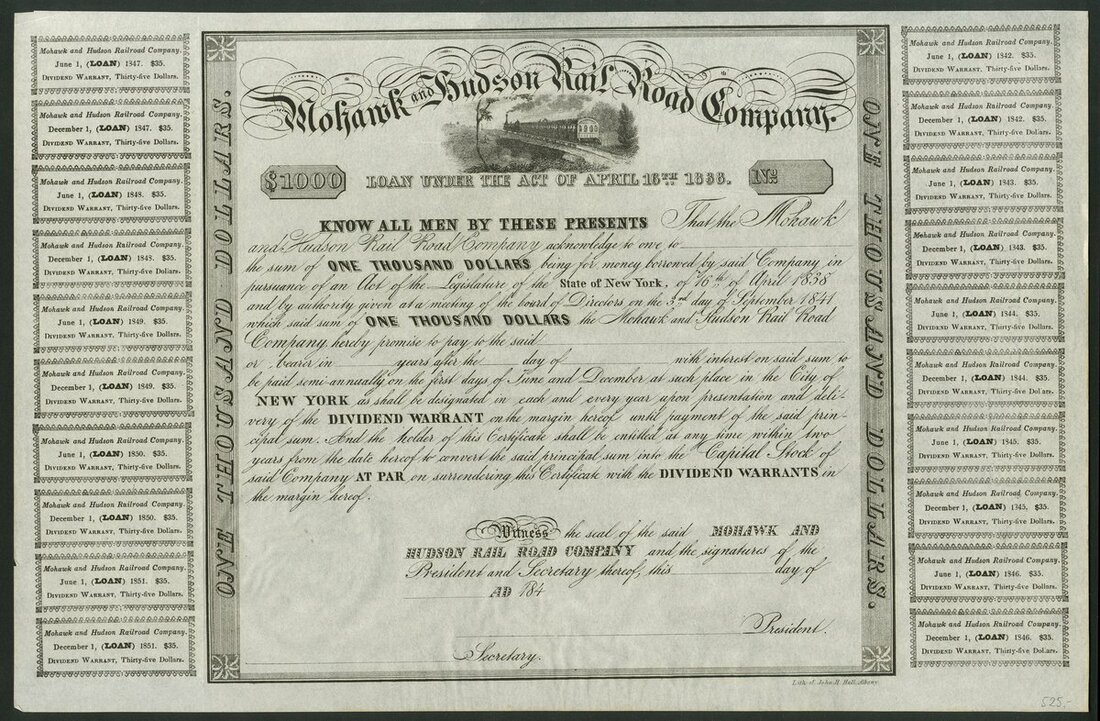 Mohawk and Hudson Railroad Company.
June 1, (LOAN) 1847. $35.
DIVIDEND WARRANT, Thirty-five Dollars.
Mohawk and Hudson Railroad Company.
December 1, (LOAN) 1847. $35.
DIVIDEND WARRANT, Thirty-five Dollars.
Mohawk and Hudson Railroad Company.
June 1, (LOAN) 1848. $35.
DIVIDEND WARRANT, Thirty-five Dollars.
Mohawk and Hudson Railroad Company.
December 1, (LOAN) 1848. $35.
DIVIDEND WARRANT, Thirty-five Dollars.
Mohawk and Hudson Railroad Company.
June 1, (LOAN) 1849. $35.
DIVIDEND WARRANT, Thirty-five Dollars.
Mohawk and Hudson Railroad Company.
December 1, (LOAN) 1849. $35.
DIVIDEND WARRANT, Thirty-five Dollars.
Mohawk and Hudson Railroad Company.
June 1, (LOAN) 1850. $35.
DIVIDEND WARRANT, Thirty-five Dollars.
Mohawk and Hudson Railroad Company.
December 1, (LOAN) 1850. $35.
DIVIDEND WARRANT, Thirty-five Dollars.
Mohawk and Hudson Railroad Company.
June 1, (LOAN) 1851. $35.
DIVIDEND WARRANT, Thirty-five Dollars.
Mohawk and Hudson Railroad Company.
December 1, (LOAN) 1851. $35.
DIVIDEND WARRANT, Thirty-five Dollars.
ONE THOUSAND DOLLARS.
Mohawk and Hudson Rail Road Company.
$1000
LOAN UNDER THE ACT OF APRIL 16TH 1838.
No.
KNOW ALL MEN BY THESE PRESENTS That the Mohawk
and Hudson Rail Road Company acknowledge to owe to
the sum of ONE THOUSAND DOLLARS being for money borrowed by said Company in
pursuance of an Act of the Legislature of the State of New York, of 16th of April 1838
and by authority given at a meeting of the board of Directors on the 3rd day of September 1841
which said sum of ONE THOUSAND DOLLARS the Mohawk and Hudson Rail Road
Company hereby promise to pay to the said
or bearer in years after the day of with interest on said sum to
be paid semi-annually on the first days of June and December at such place in the City of
NEW YORK as shall be designated in each and every year upon presentation and deli-
very of the DIVIDEND WARRANT on the margin hereof until payment of the said prin-
cipal sum. And the holder of this Certificate shall be entitled at any time within two
years from the date hereof to convert the said principal sum into the Capital Stock of
said Company AT PAR on surrendering this Certificate with the DIVIDEND WARRANTS in
the margin hereof.
Witness the seal of the said MOHAWK AND
HUDSON RAIL ROAD COMPANY and the signatures of the
President and Secretary thereof, this day of
AD 184
President.
Secretary.
Lith. of John H. Hall, Albany.
ONE THOUSAND DOLLARS.
Mohawk and Hudson Railroad Company.
June 1, (LOAN) 1842. $35.
DIVIDEND WARRANT, Thirty-five Dollars.
Mohawk and Hudson Railroad Company.
December 1, (LOAN) 1842. $35.
DIVIDEND WARRANT, Thirty-five Dollars.
Mohawk and Hudson Railroad Company.
June 1, (LOAN) 1843. $35.
DIVIDEND WARRANT, Thirty-five Dollars.
Mohawk and Hudson Railroad Company.
December 1, (LOAN) 1343. $35.
DIVIDEND WARRANT, Thirty-five Dollars.
Mohawk and Hudson Railroad Company.
June 1, (LOAN) 1844. $35.
DIVIDEND WARRANT, Thirty-five Dollars.
Mohawk and Hudson Railroad Company.
December 1, (LOAN) 1844. $35.
DIVIDEND WARRANT, Thirty-five Dollars.
Mohawk and Hudson Railroad Company.
June 1, (LOAN) 1845. $35.
DIVIDEND WARRANT, Thirty-five Dollars.
Mohawk and Hudson Railroad Company.
December 1, (LOAN) 1345, $35.
DIVIDEND WARRANT, Thirty-five Dollars.
Mohawk and Hudson Railroad Company.
June 1, (LOAN) 1846. $35.
DIVIDEND WARRANT, Thirty-five Dollars.
Mohawk and Hudson Railroad Company.
December 1, (LOAN) 1846. $35.
DIVIDEND WARRANT, Thirty-five Dollars.
525,-